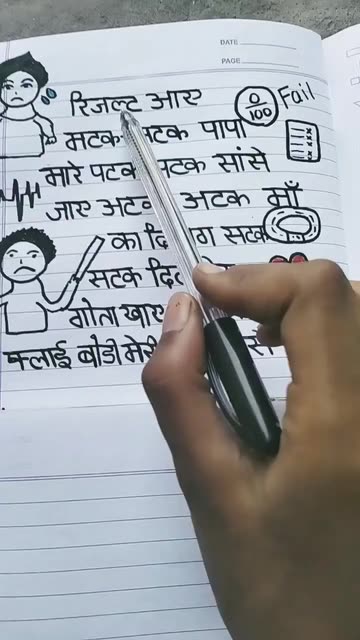 DATE
PAGE
रिजल्ट आए
0/100
Fail
मटक पापा
मारे पटक पटक सांसे
जाए अटक अटक माँ
का सटक
सटक
गोता खाए
फ्लाई बोडी मेरी